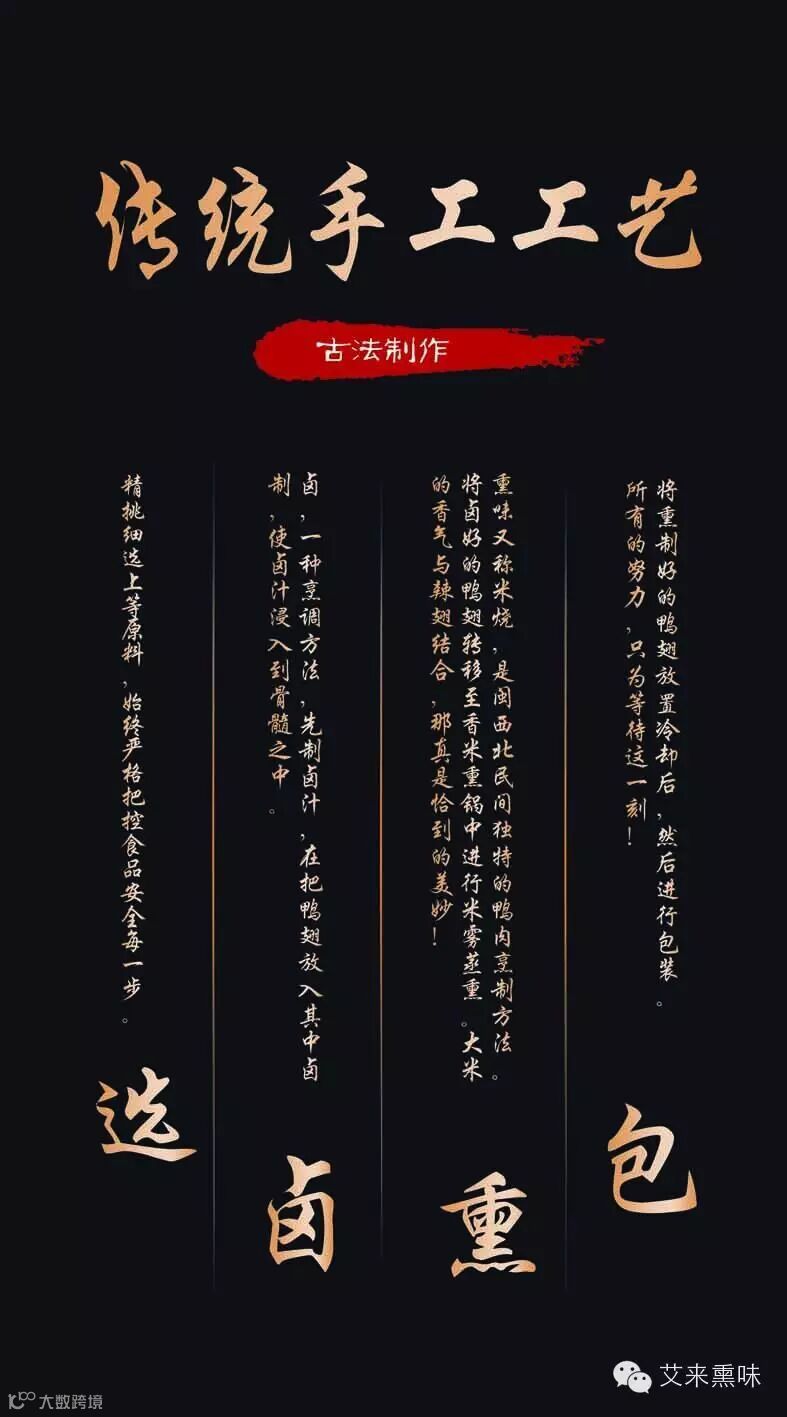 传统手工工艺
古法制作
精挑细选上等原料,始终严格把控食品安全每一步。
选
卤,一种烹调方法,先制卤汁,在把鸭翅放入其中卤
制,使卤汁浸入到骨髓之中。
卤
熏味又称米烧,是闽西北民间独特的鸭肉烹制方法。
将卤好的鸭翅转移至香米熏锅中进行米雾蒸熏。大米
的香气与辣翅结合,那真是恰到的美妙!
熏
将熏制好的鸭翅放置冷却后,然后进行包装。
所有的努力,只为等待这一刻!
包
艾来熏味
大数跨境